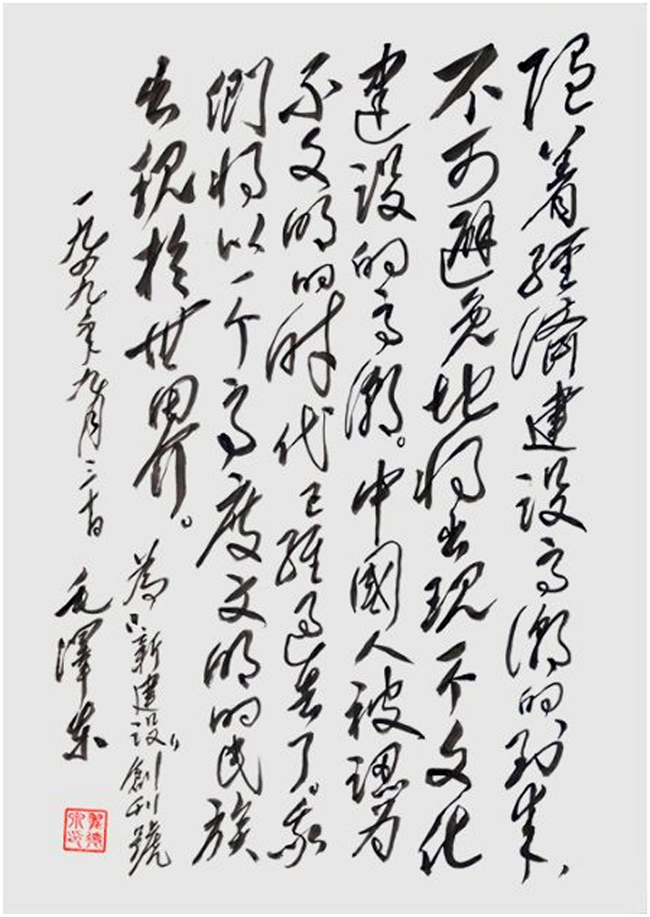 随着經濟建設高潮的到来、
不可避免地将出现一个文化
建設的高潮。中國人被認为
不文明的时代已經过去了。我
們将以一个高度文明的民族
出现於世界。
為“新建設”創刊號
一九四九年九月三十日
毛澤东